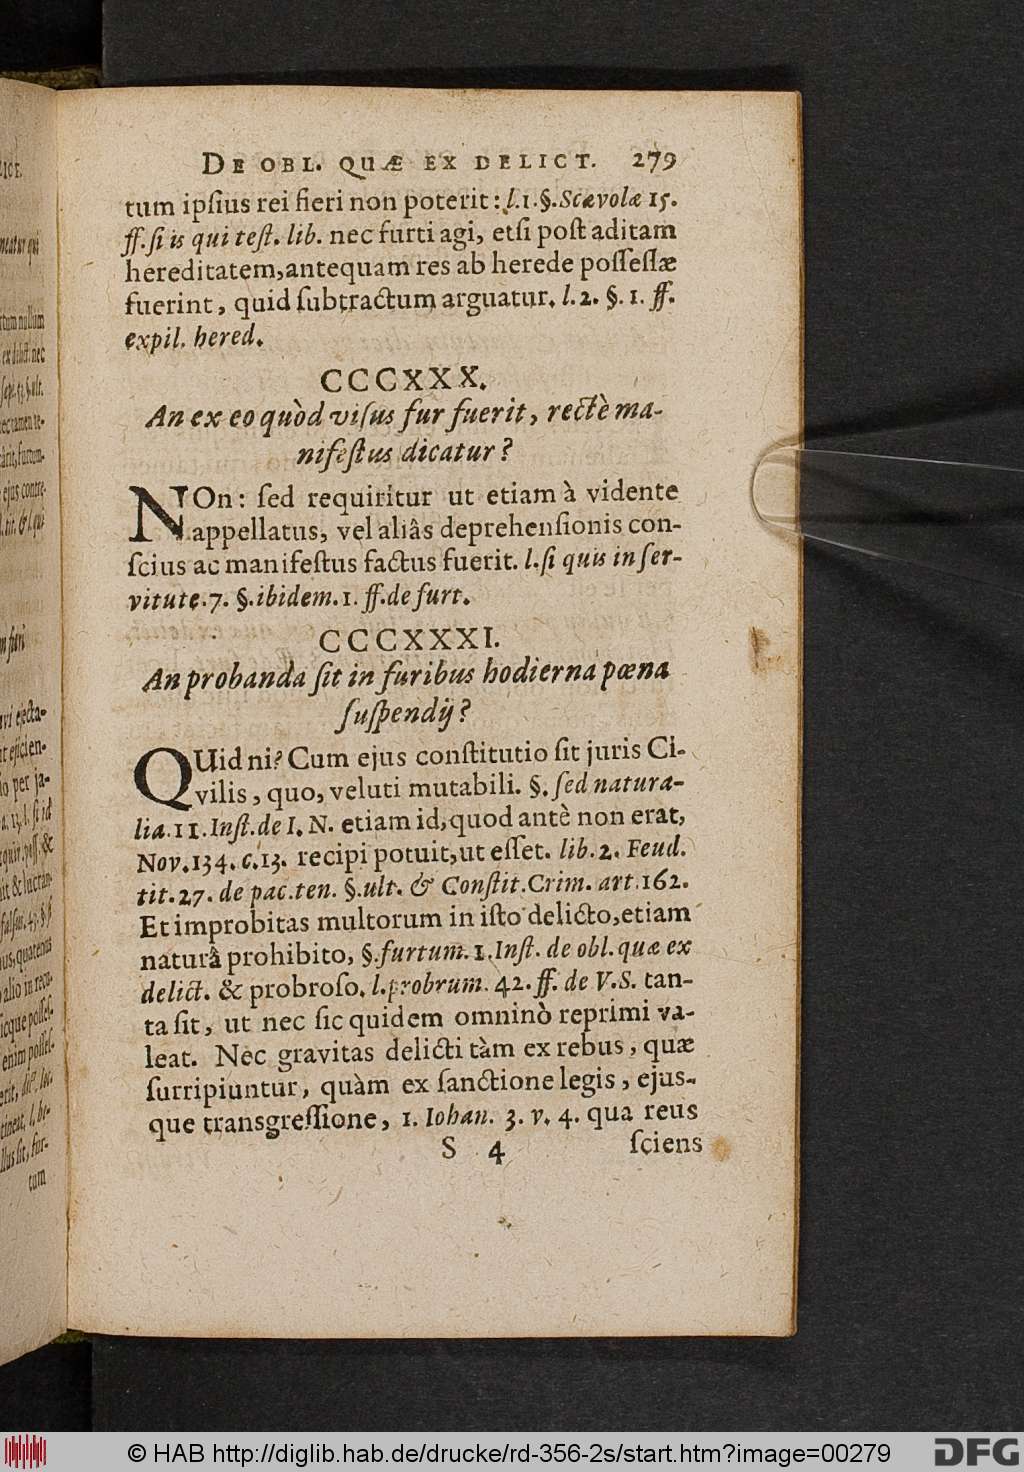 DE OBL. QUÆ EX DELICT. 279
tum ipſius rei fieri non poterit: l.1.§.Scævolæ 15.
ff.ſi is qui teſt. lib. nec furti agi, etſi poſt aditam
hereditatem,antequam res ab herede poſſeſſæ
fuerint, quid ſubtractum arguatur. l.2. §. 1. ff.
expil. hered.
CCCXXX.
An ex eo quòd viſus fur fuerit, rectè ma-
nifeſtus dicatur?
NOn: ſed requiritur ut etiam à vidente
appellatus, vel aliâs deprehenſionis con-
ſcius ac manifeſtus factus fuerit. l.ſi quis in ſer-
vitute.7. §.ibidem.1. ff.de furt.
CCCXXXI.
An probanda ſit in furibus hodierna pœna
ſuſpendij?
QUid ni? Cum ejus conſtitutio ſit juris Ci-
vilis, quo, veluti mutabili. §. ſed natura-
lia.11.Inſt.de I. N. etiam id,quod antè non erat,
Nov.134.c.13. recipi potuit,ut eſſet. lib.2. Feud.
tit.27. de pac.ten. §.ult. & Conſtit.Crim. art.162.
Et improbitas multorum in iſto delicto,etiam
naturâ prohibito, §.furtum.1.Inſt. de obl.quæ ex
delict. & probroſo. l.probrum. 42.ff. de V.S. tan-
ta ſit, ut nec ſic quidem omninò reprimi va-
leat. Nec gravitas delicti tàm ex rebus, quæ
ſurripiuntur, quàm ex ſanctione legis, ejus-
que transgreſſione, 1. Iohan. 3. v. 4. qua reus
S 4 ſciens
© HAB http://diglib.hab.de/drucke/rd-356-2s/start.htm?image=00279
DFG